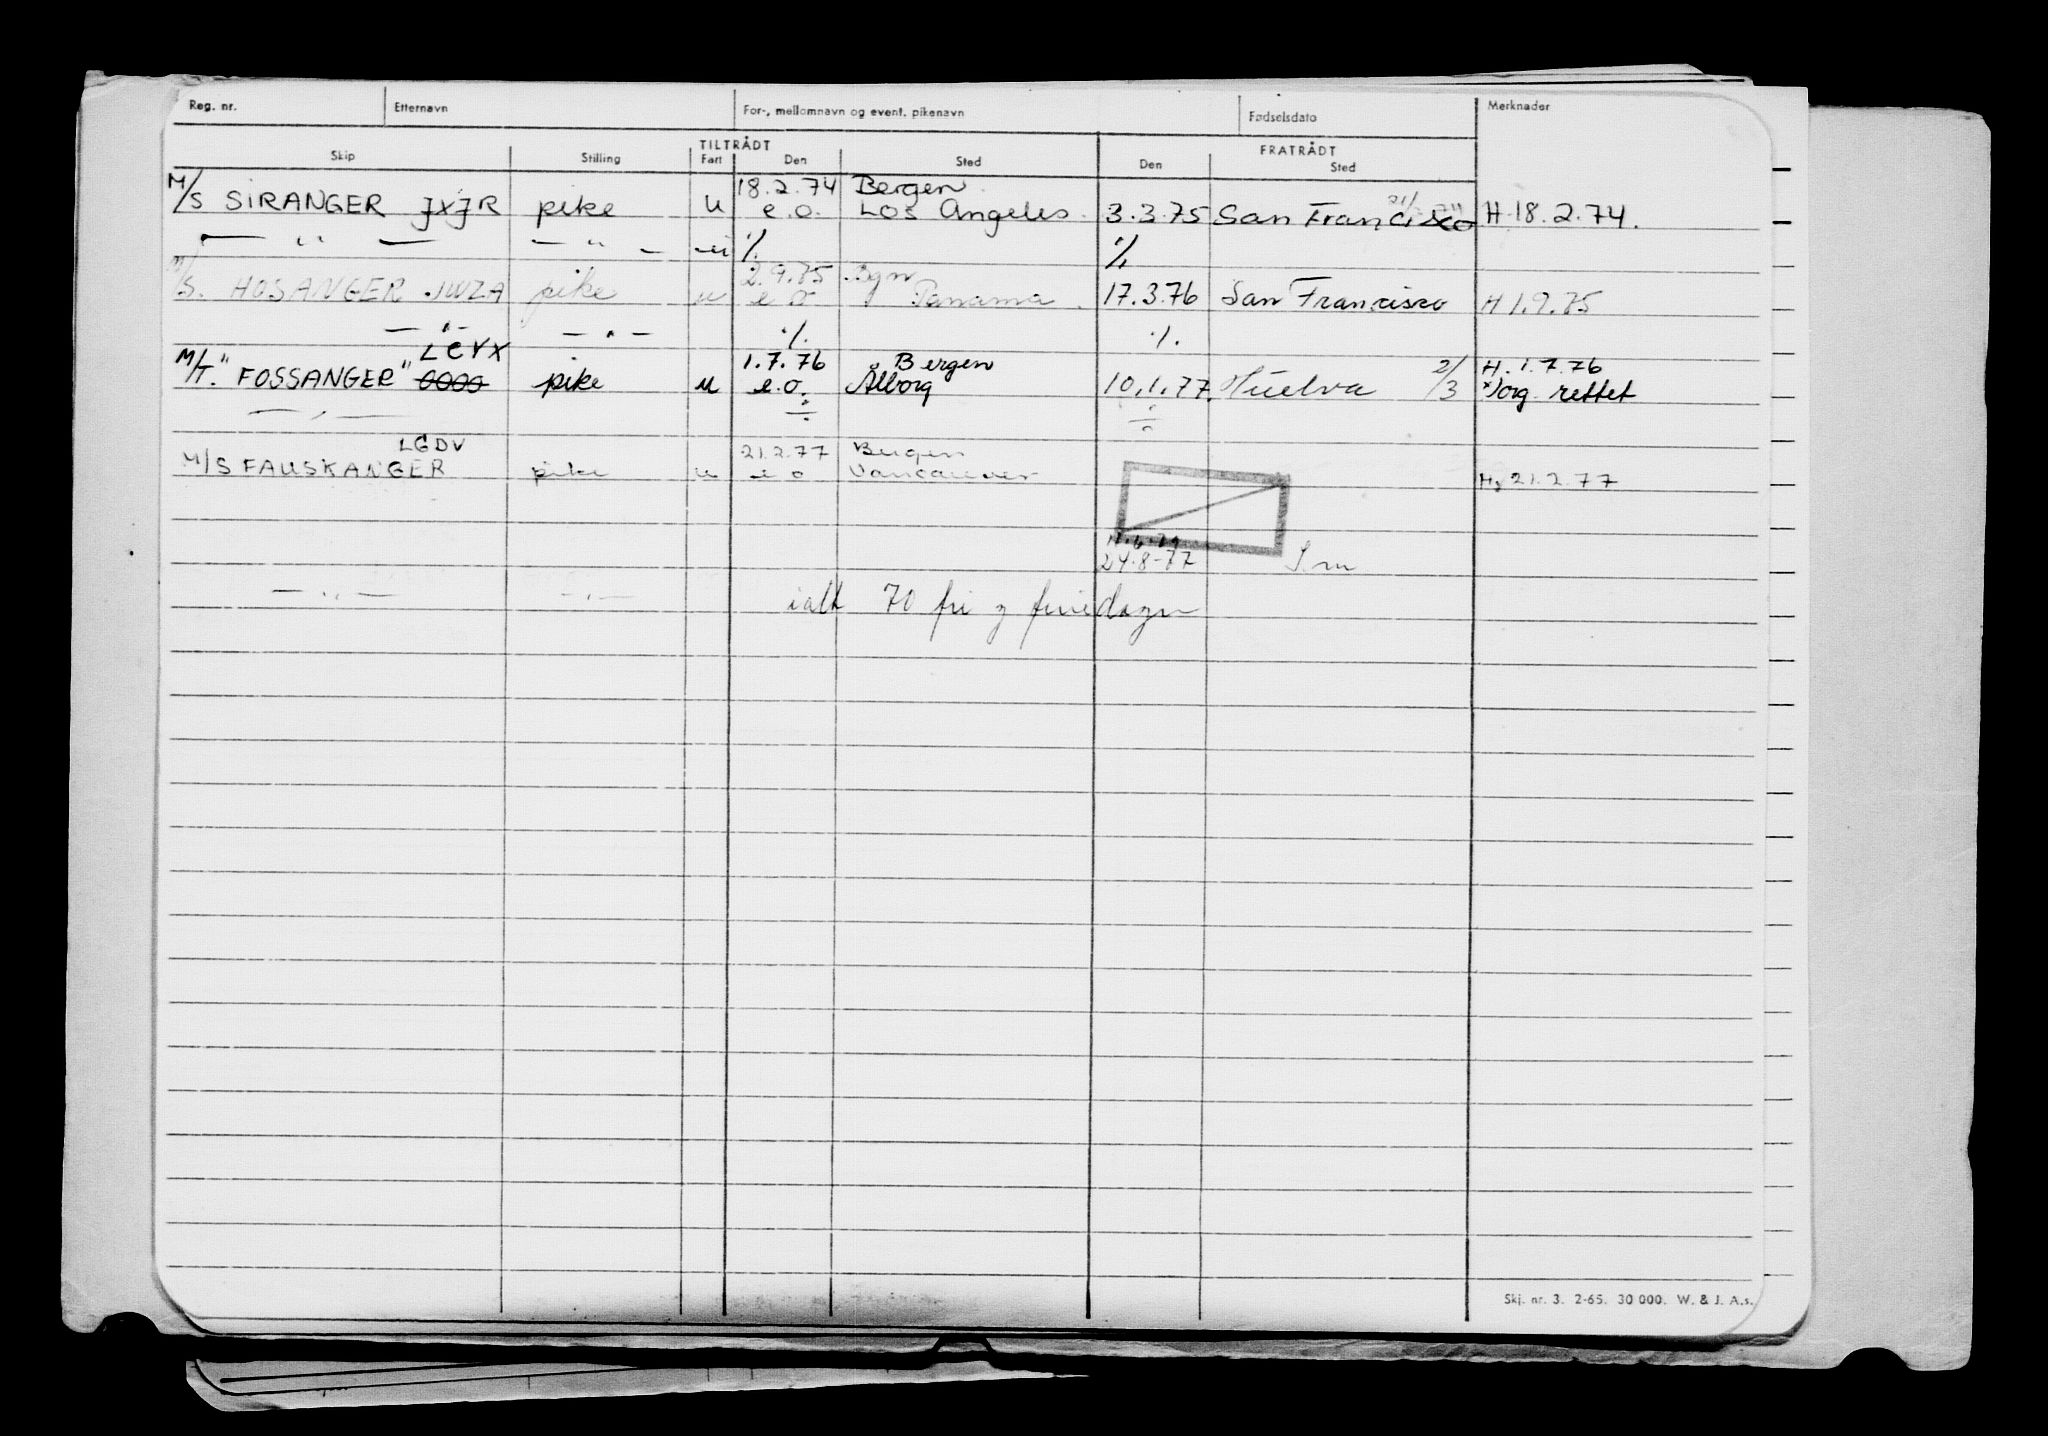 Reg. nr. Etternavn For-, mellomnavn og event. pikenavn Fødselsdato Merknader
TILTRÅDT FRATRÅDT
Skip Stilling Fart Den Sted Den Sted
18.2.74 Bergen
M/S SIRANGER JXJR pike u e.o. Los Angeles 3.3.75 San Francisco H 18.2.74.
— " — — " — ./. ./.
2.9.75 Bgn
M/S. HOSANGER JWZA pike u e o Panama 17.3.76 San Francisco H 1.9.75
— " — — " — ./. ./.
LCVX 1.7.76 Bergen 2/ H. 1.7.76
M/T. "FOSSANGER" pike u e.o. Ålborg 10.1.77 Huelva /3 x) org. rettet
— " — ÷ ÷
LGDV 21.2.77 Bergen
M/S FAUSKANGER pike u e o Vancouver H 21.2.77
24.8-77 S.m
— " — — " — ialt 70 fri g feriedager
Skj. nr. 3. 2-65. 30 000. W. & J. A.s.